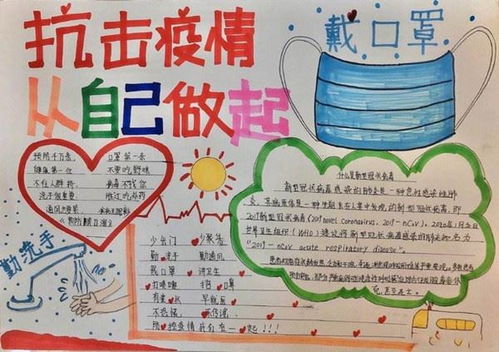 抗击疫情
从自己做起
戴口罩
预防千万条
口罩第一条
健康第一位
不要吃野味
不往人群挤
病毒不找你
洗手很重要
通风
勤洗手
少出门 少聚集
勤洗手 勤通风
戴口罩 讲卫生
打喷嚏 捂口鼻
有发热 早就医
不恐慌 不传谣
防控疫情我们在一起!!!
什么是新型冠状病毒
新型冠状病毒感染的肺炎是一种急性感染性肺
炎,其病原体是一种先前未在人类中发现的新型冠状病毒,即
2019新型冠状病毒(2019 novel Coronavirus, 2019-nCoV),2020年1月
世界卫生组织(WHO)建议将新型冠状病毒感染的肺炎命名为
"2019-nCoV acute respiratory disease".